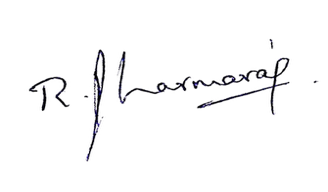 R. Dharmaraj